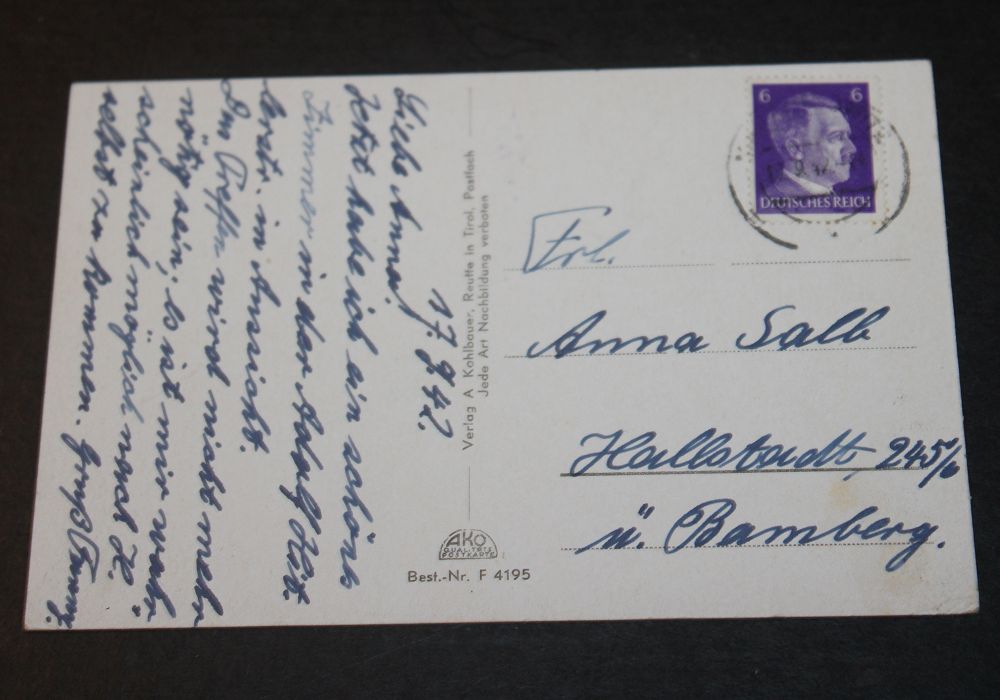 17. 9. 42.
Liebe Anna!
Jetzt habe ich ein schönes
Zimmer in der Adolf Hit-
lerstr. in Aussicht.
Den Treffen wirst nicht mehr
nötig sein, so ist mir wahr-
scheinlich möglich nach H.
selbst zu kommen. Gruß Fanny.
Verlag A Kohlbauer, Reutte in Tirol, Postfach
Jede Art Nachbildung verboten
AKO
QUALITÄTS
POSTKARTE
Best.-Nr. F 4195
6 6
DEUTSCHES REICH
Frl.
Anna Salb
Hallstadt 245/6
ü. Bamberg.